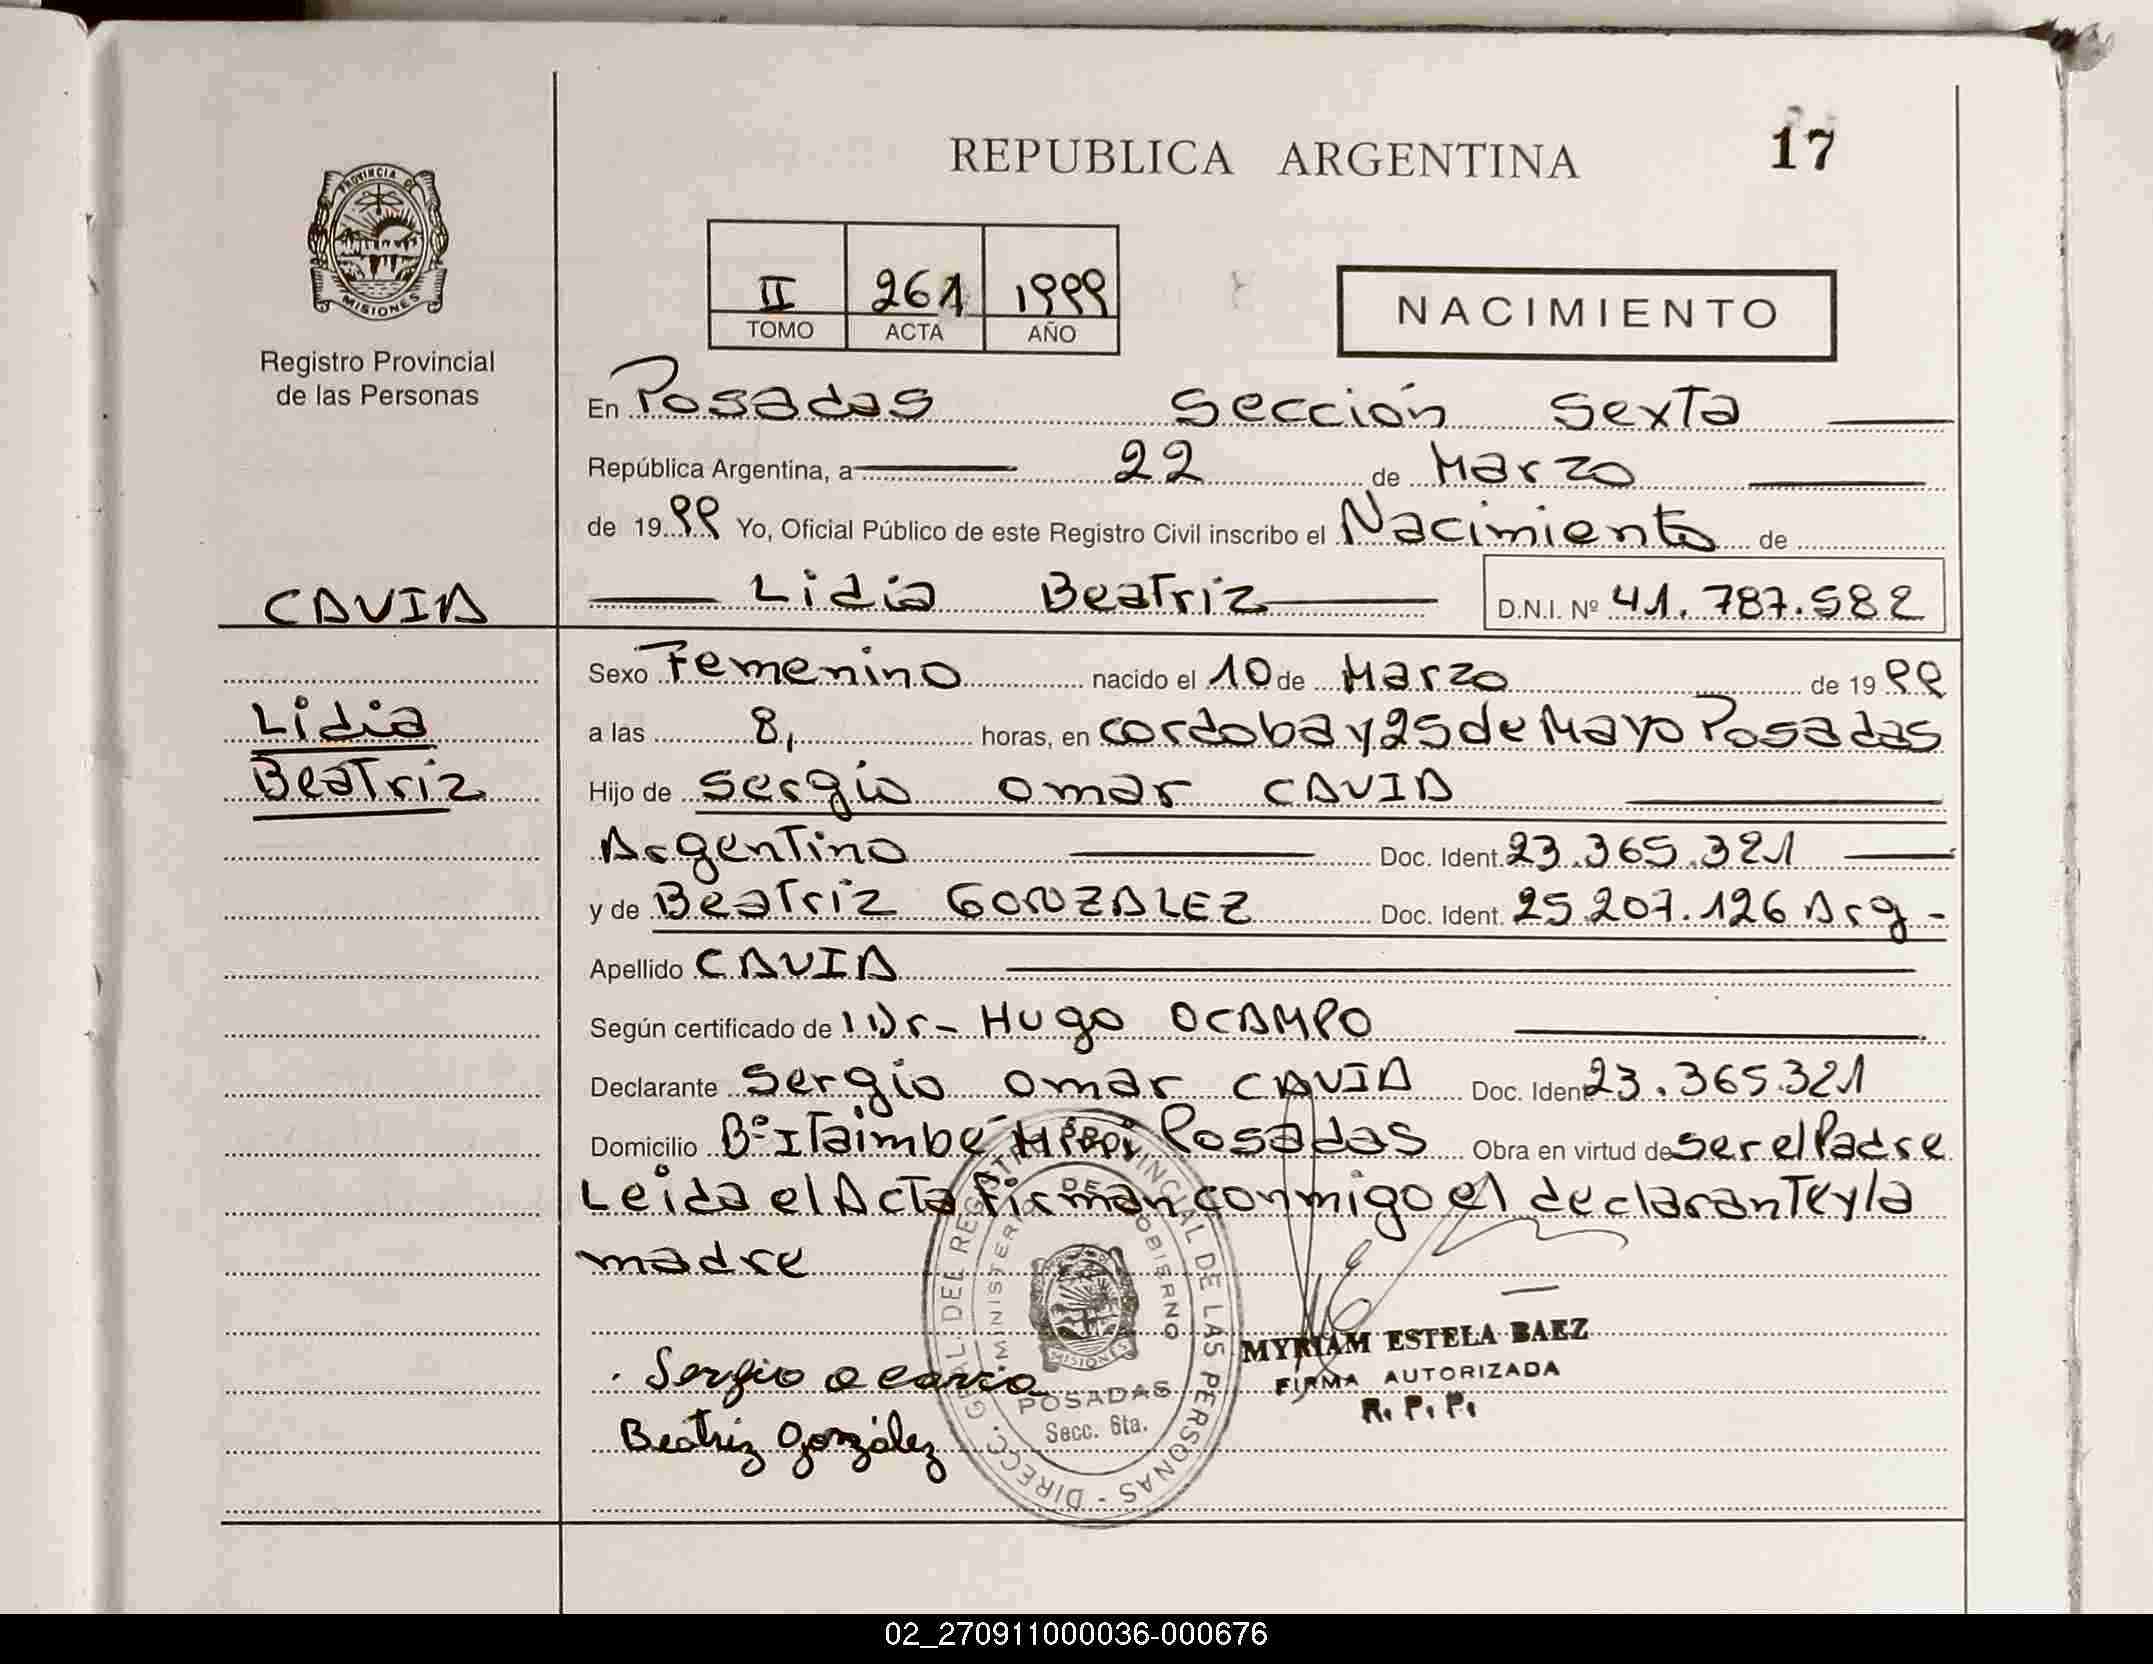 REPUBLICA ARGENTINA
17
PROVINCIA DE
MISIONES
Registro Provincial
de las Personas
II 261 1999
TOMO ACTA AÑO
NACIMIENTO
En Posadas Sección Sexta
República Argentina, a 22 de Marzo
de 1999 Yo, Oficial Público de este Registro Civil inscribo el Nacimiento de
CAVIA
Lidia Beatriz D.N.I. Nº 41.787.582
Sexo Femenino nacido el 10 de Marzo de 1999
Lidia
a las 8, horas, en cordoba y 25 de Mayo Posadas
Beatriz
Hijo de Sergio Omar CAVIA
Argentino Doc. Ident. 23.365.321
y de Beatriz GONZALEZ Doc. Ident. 25.207.126 Arg-
Apellido CAVIA
Según certificado de Dr- Hugo OCAMPO
Declarante Sergio Omar CAVIA Doc. Ident 23.365.321
Domicilio Bº Itaimbe Miní Posadas Obra en virtud de ser el Padre
Leida el Acta firman conmigo el declarante y la
madre
DIRECC. GRAL. DEL REGISTRO PROVINCIAL DE LAS PERSONAS
MINISTERIO DE GOBIERNO
MISIONES
POSADAS
Secc. 6ta.
MYRIAM ESTELA BAEZ
FIRMA AUTORIZADA
R. P. P.
Sergio O Cavia
Beatriz González
02_270911000036-000676